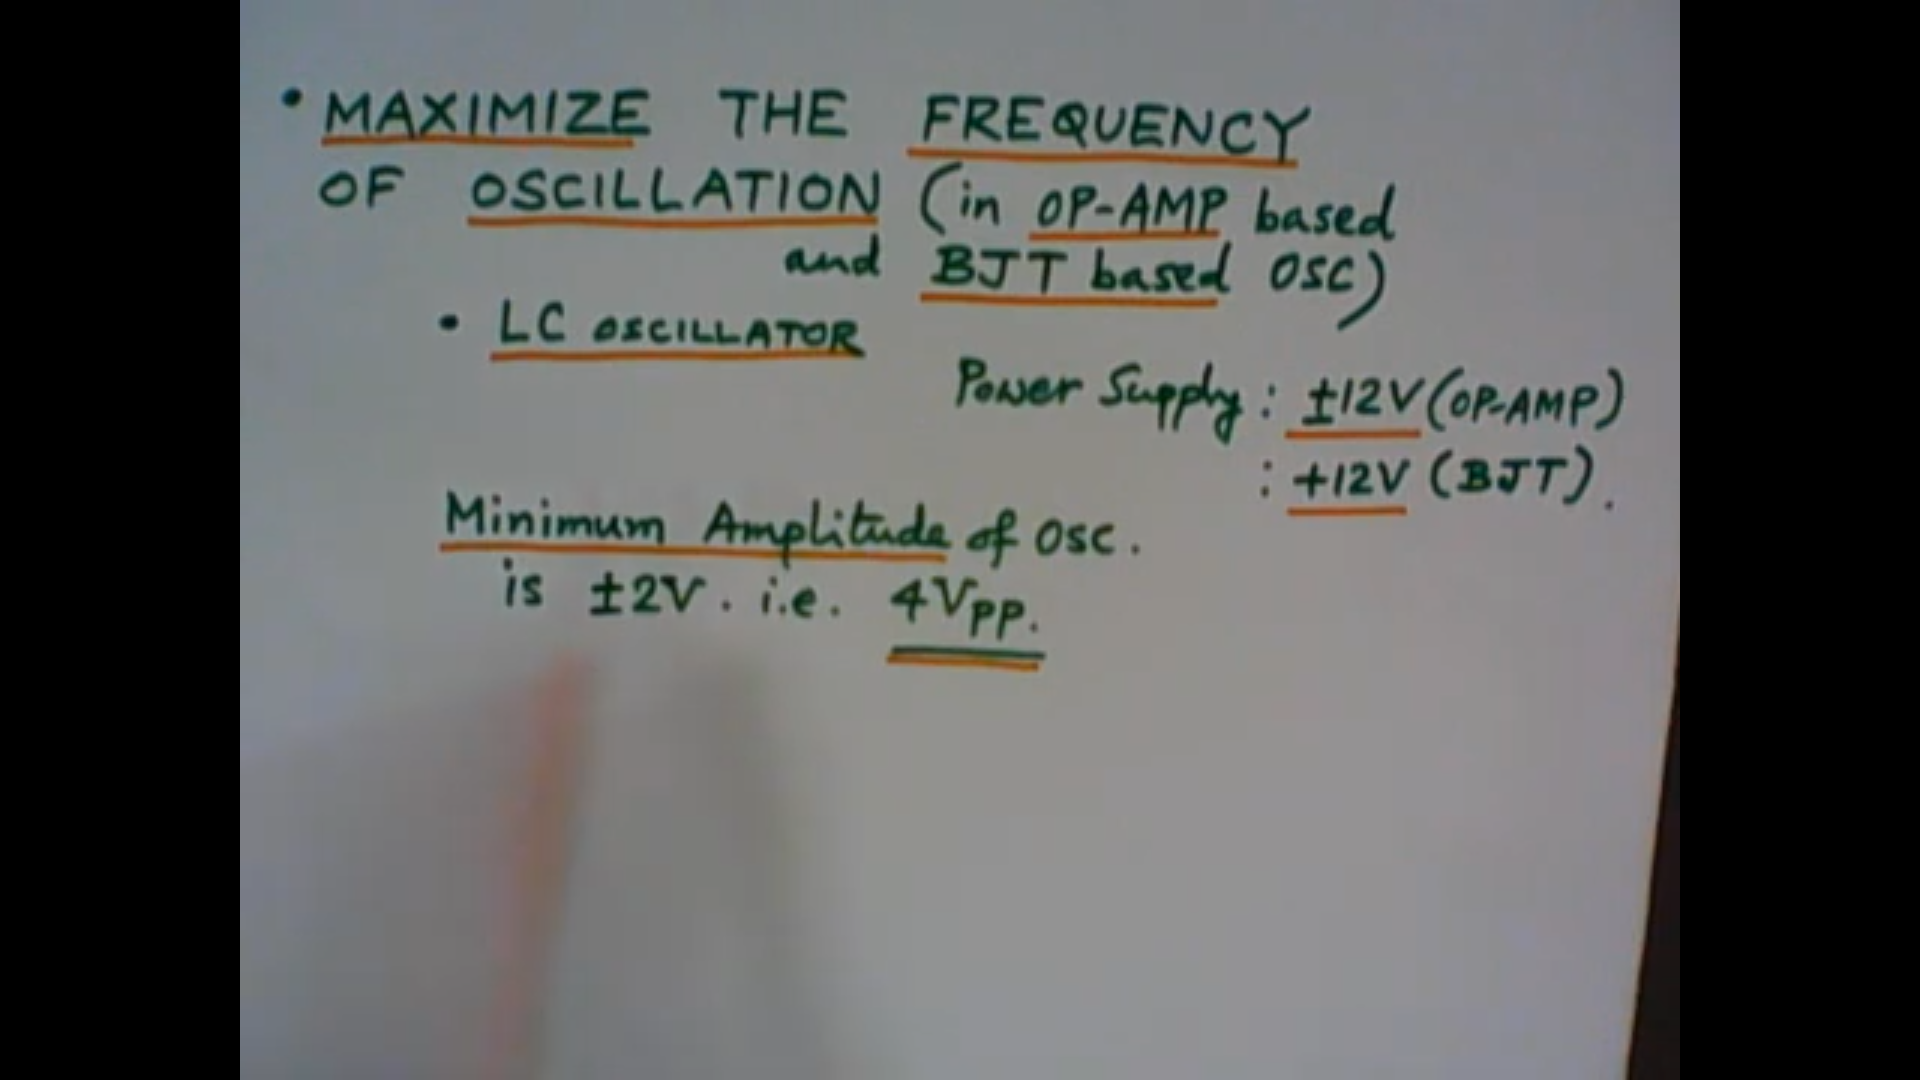 • MAXIMIZE THE FREQUENCY
OF OSCILLATION (in OP-AMP based
and BJT based OSC)
• LC OSCILLATOR
Power Supply : ±12V (OP-AMP)
: +12V (BJT).
Minimum Amplitude of Osc.
is ±2V. i.e. 4Vpp.